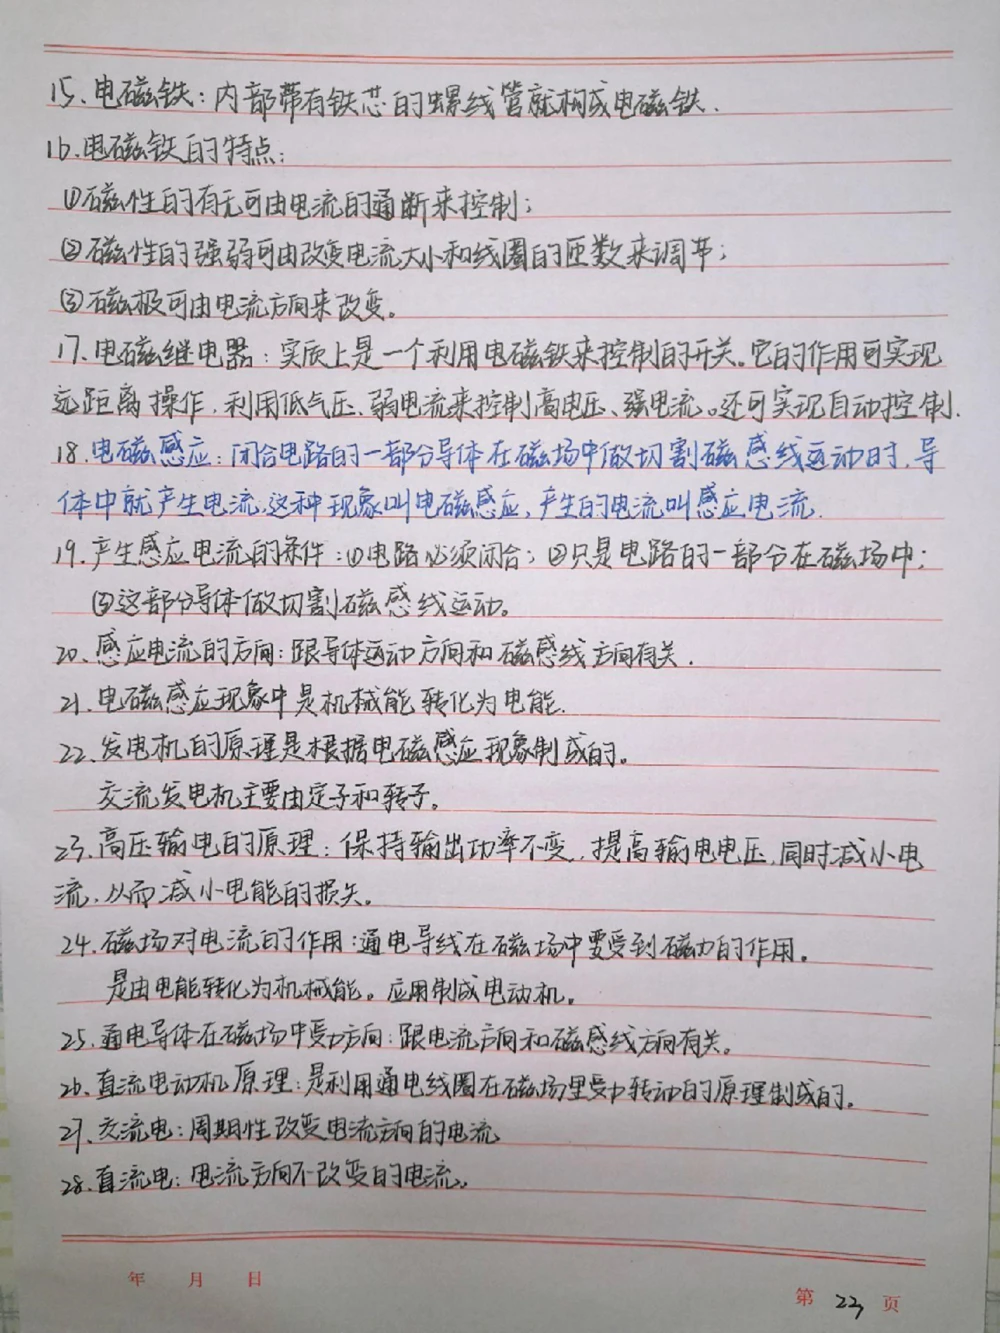 15、电磁铁：内部带有铁芯的螺线管就构成电磁铁.
16、电磁铁的特点：
①磁性的有无可由电流的通断来控制；
②磁性的强弱可由改变电流大小和线圈的匝数来调节；
③磁极可由电流方向来改变。
17、电磁继电器：实质上是一个利用电磁铁来控制的开关。它的作用可实现
远距离操作，利用低气压、弱电流来控制高电压、强电流。还可实现自动控制.
18、电磁感应：闭合电路的一部分导体在磁场中做切割磁感线运动时，导
体中就产生电流，这种现象叫电磁感应，产生的电流叫感应电流.
19、产生感应电流的条件：①电路必须闭合；②只是电路的一部分在磁场中；
③这部分导体做切割磁感线运动。
20、感应电流的方向：跟导体运动方向和磁感线方向有关.
21、电磁感应现象中是机械能转化为电能.
22、发电机的原理是根据电磁感应现象制成的。
交流发电机主要由定子和转子。
23、高压输电的原理：保持输出功率不变，提高输电电压，同时减小电
流，从而减小电能的损失。
24、磁场对电流的作用：通电导线在磁场中要受到磁力的作用。
是由电能转化为机械能。应用制成电动机。
25、通电导体在磁场中受力方向：跟电流方向和磁感线方向有关。
26、直流电动机原理：是利用通电线圈在磁场里受力转动的原理制成的。
27、交流电：周期性改变电流方向的电流
28、直流电：电流方向不改变的电流。
年 月 日
第 22 页